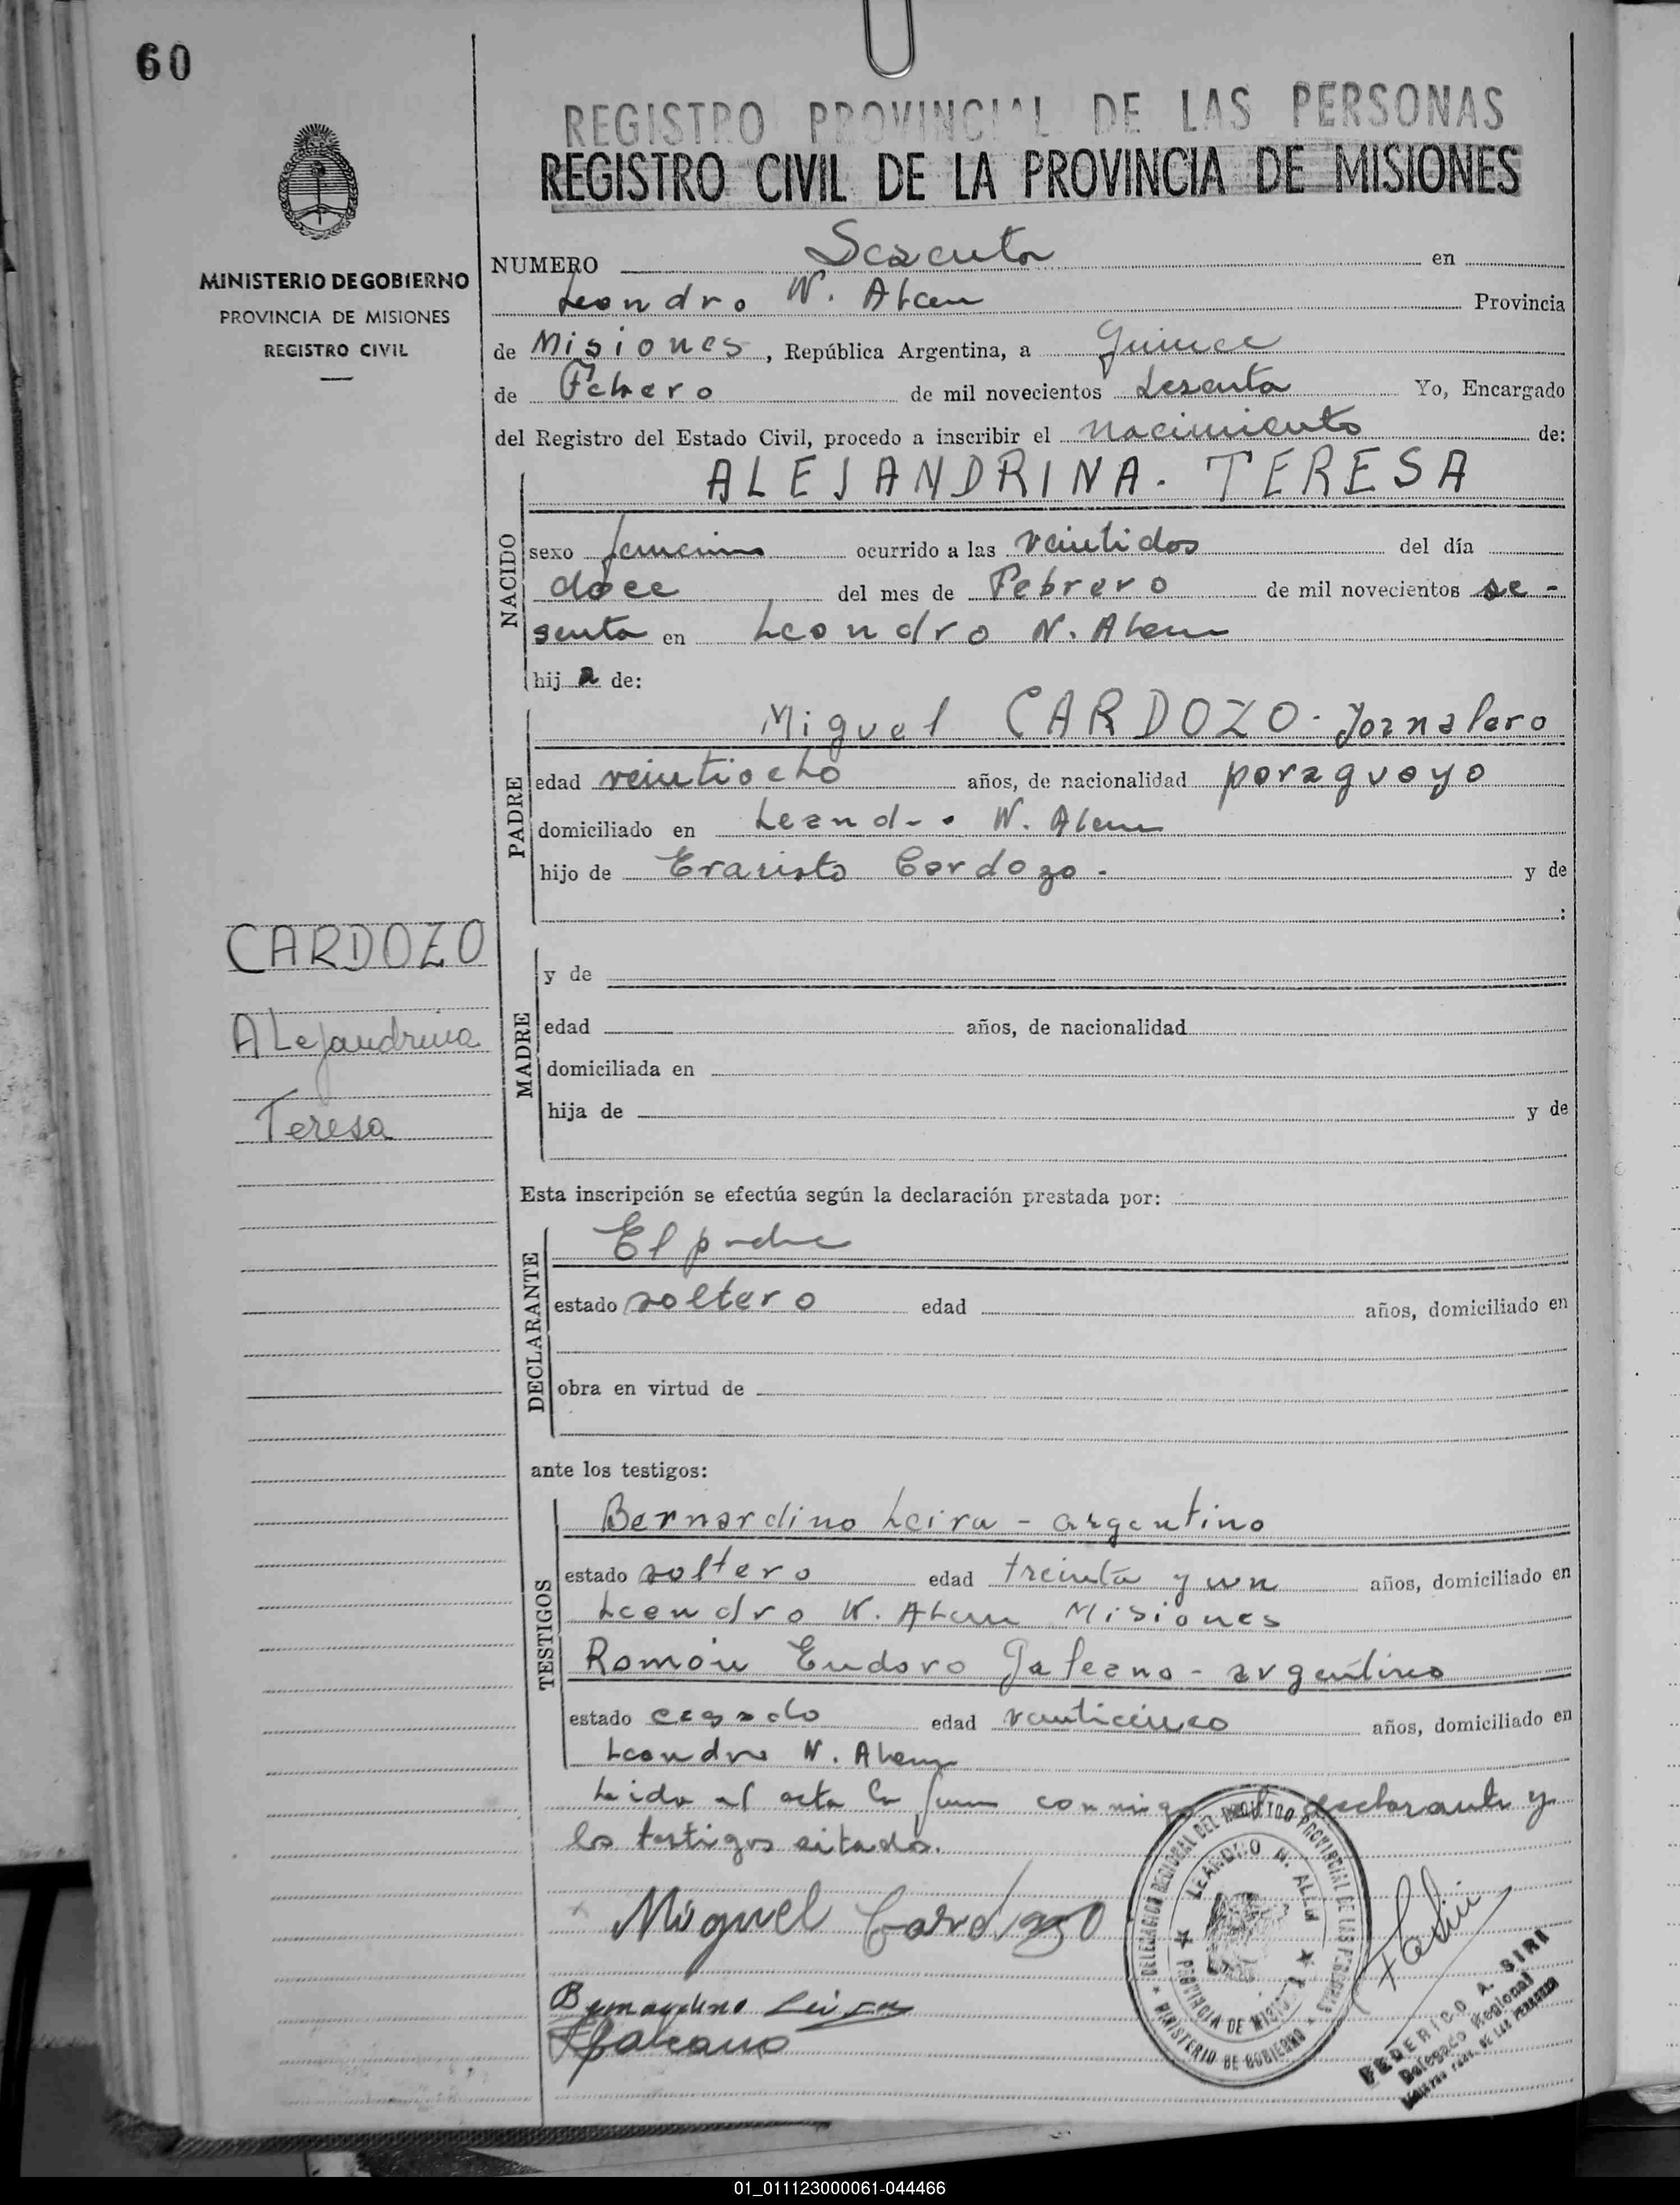 60
REGISTRO PROVINCIAL DE LAS PERSONAS
REGISTRO CIVIL DE LA PROVINCIA DE MISIONES
MINISTERIO DE GOBIERNO
PROVINCIA DE MISIONES
REGISTRO CIVIL
NUMERO Sesenta en
Leandro N. Alem Provincia
de Misiones, República Argentina, a Quince
de Febrero de mil novecientos sesenta Yo, Encargado
del Registro del Estado Civil, procedo a inscribir el nacimiento de:
NACIDO
ALEJANDRINA. TERESA
sexo femenino ocurrido a las veintidos del día
doce del mes de Febrero de mil novecientos se-
senta en Leandro N. Alem
hija de:
PADRE
Miguel CARDOZO. Jornalero
edad veintiocho años, de nacionalidad paraguayo
domiciliado en Leandro N. Alem
hijo de Evaristo Cardozo. y de
:
CARDOZO
Alejandrina
Teresa
MADRE
y de
edad años, de nacionalidad
domiciliada en
hija de y de
Esta inscripción se efectúa según la declaración prestada por:
DECLARANTE
El padre
estado soltero edad años, domiciliado en
obra en virtud de
ante los testigos:
TESTIGOS
Bernardino Leiva - argentino
estado soltero edad treinta y un años, domiciliado en
Leandro N. Alem Misiones
Ramón Eudoro Galeano - argentino
estado casado edad veinticinco años, domiciliado en
Leandro N. Alem
Leida el acta la firman conmigo el declarante y
los testigos citados.
Miguel Cardozo
Bernardino Leiva
Galeano
DELEGACION REGIONAL DEL REGISTRO PROVINCIAL DE LAS PERSONAS
LEANDRO N. ALEM
PROVINCIA DE MISIONES
MINISTERIO DE GOBIERNO
FEDERICO A. SIRI
Delegado Regional
REGISTRO PROV. DE LAS PERSONAS
01_011123000061-044466